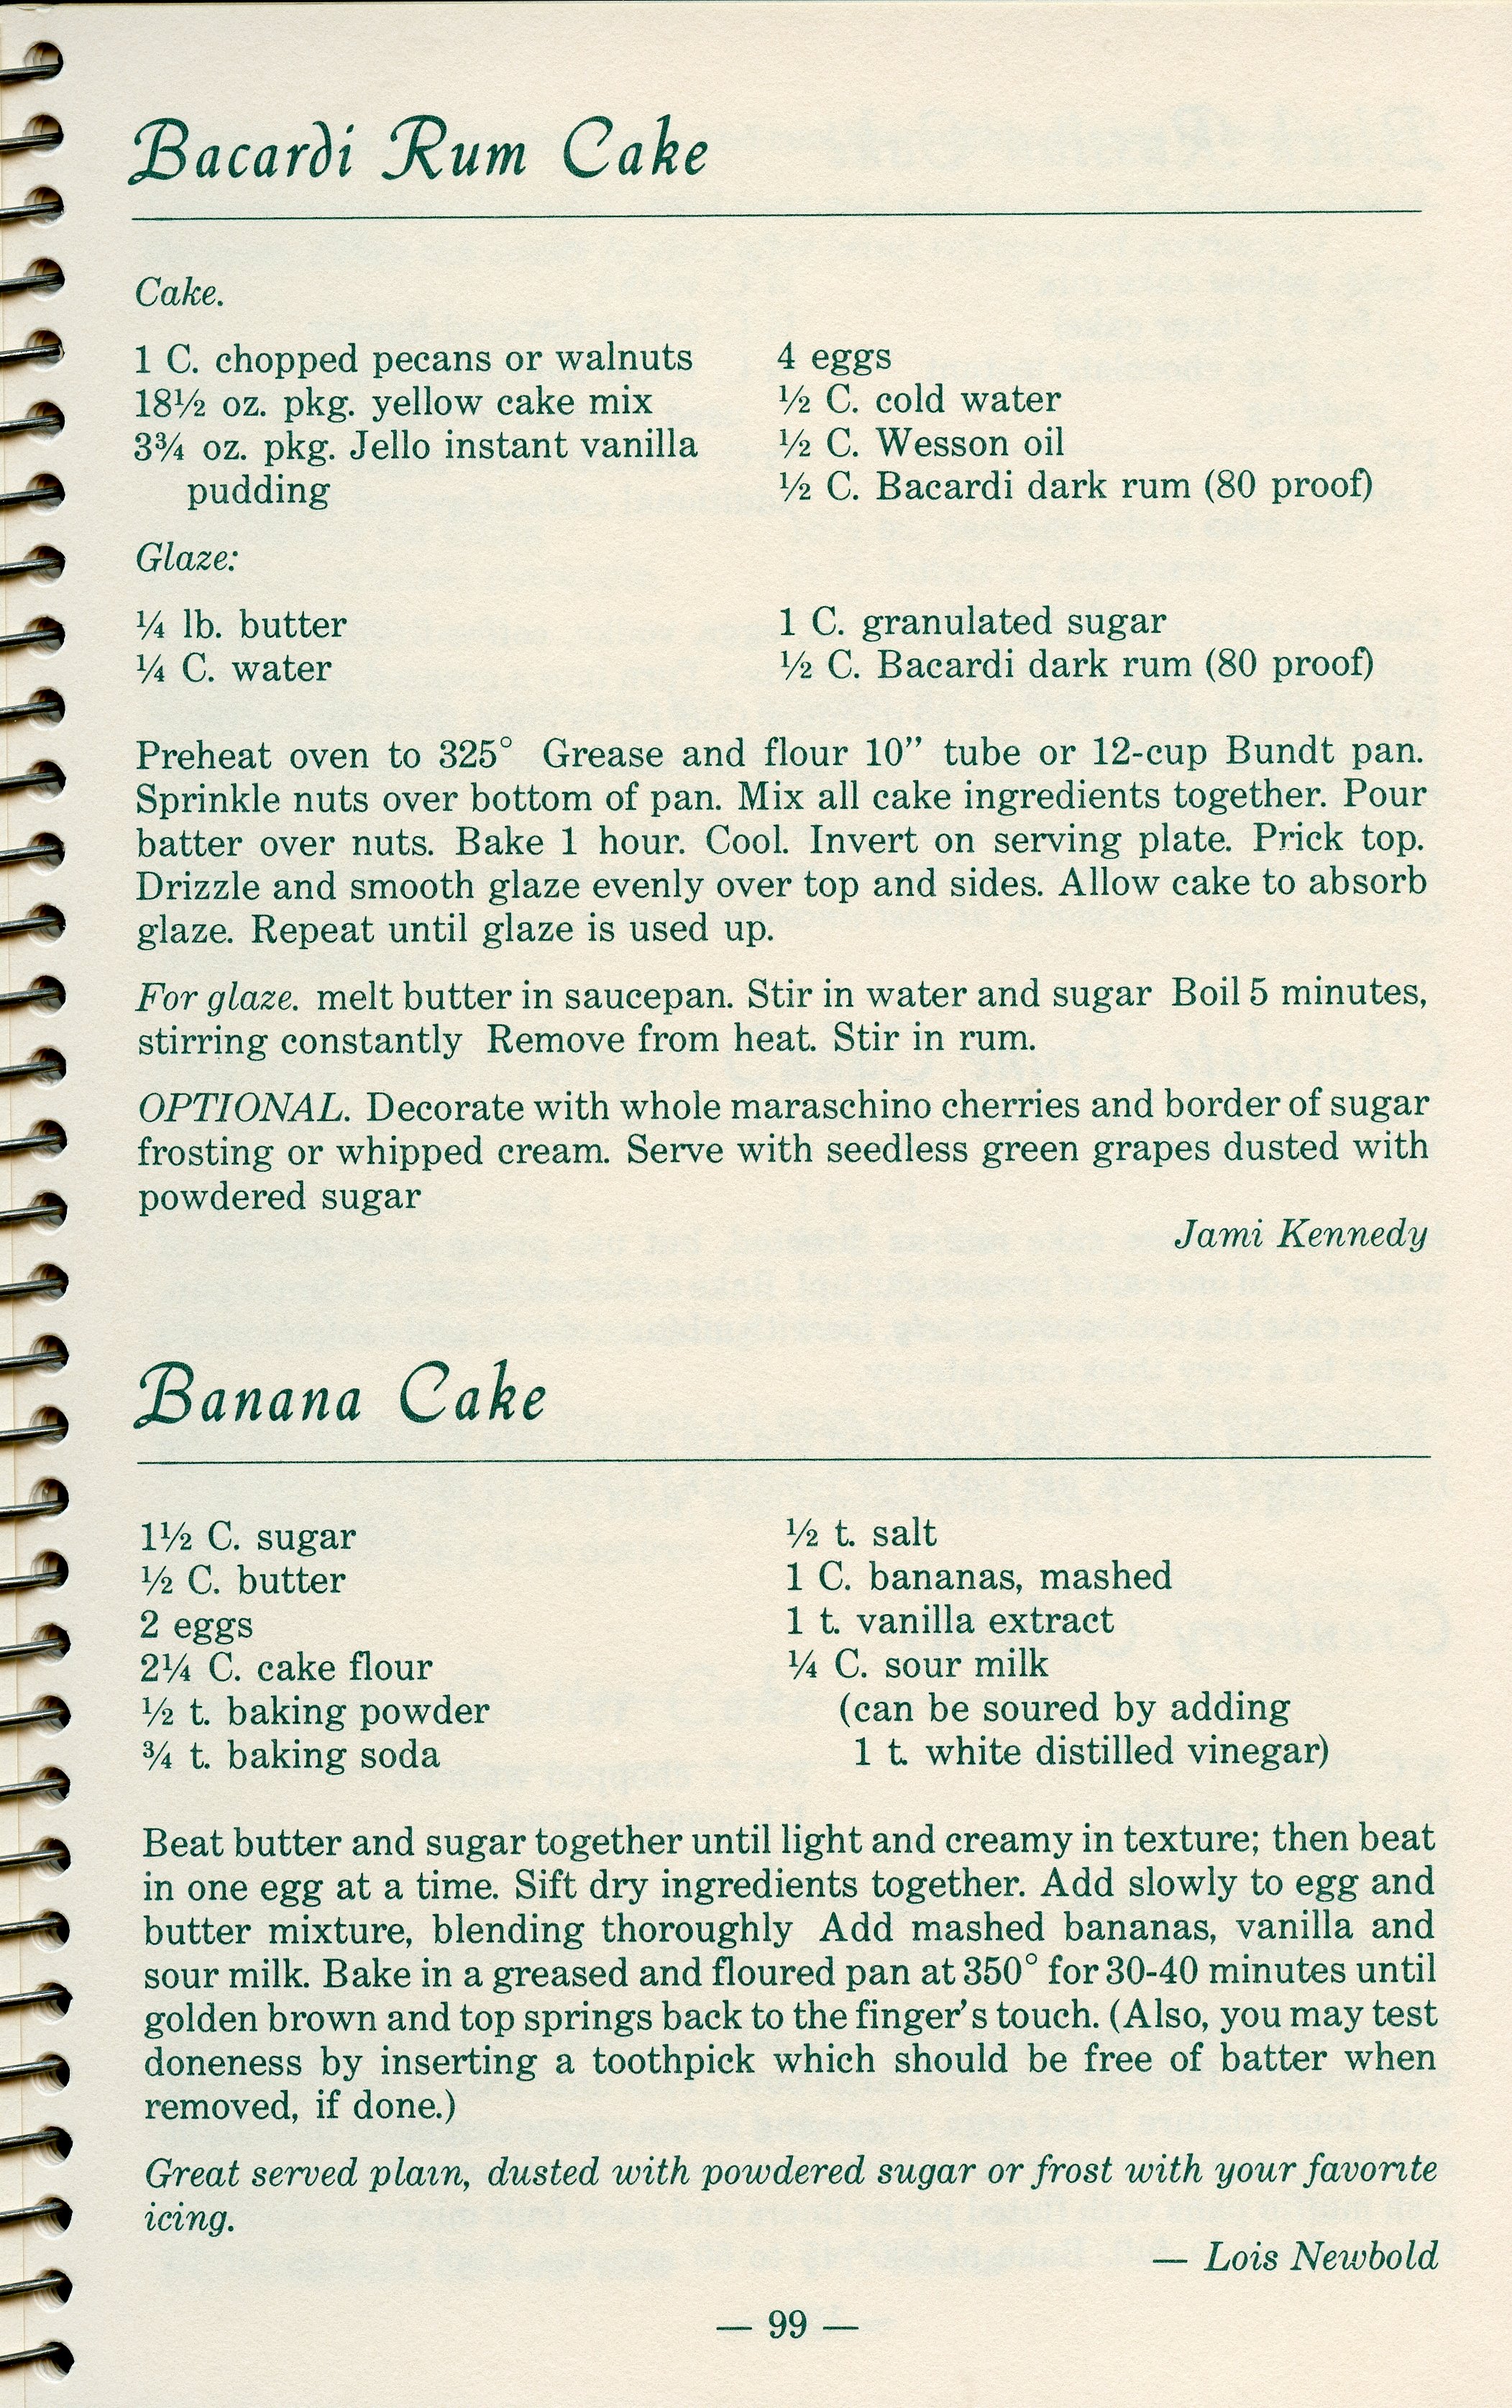 Bacardi Rum Cake
Cake.
1 C. chopped pecans or walnuts
18½ oz. pkg. yellow cake mix
3¾ oz. pkg. Jello instant vanilla
pudding
4 eggs
½ C. cold water
½ C. Wesson oil
½ C. Bacardi dark rum (80 proof)
Glaze:
¼ lb. butter
¼ C. water
1 C. granulated sugar
½ C. Bacardi dark rum (80 proof)
Preheat oven to 325° Grease and flour 10” tube or 12-cup Bundt pan.
Sprinkle nuts over bottom of pan. Mix all cake ingredients together. Pour
batter over nuts. Bake 1 hour. Cool. Invert on serving plate. Prick top.
Drizzle and smooth glaze evenly over top and sides. Allow cake to absorb
glaze. Repeat until glaze is used up.
For glaze. melt butter in saucepan. Stir in water and sugar Boil 5 minutes,
stirring constantly Remove from heat. Stir in rum.
OPTIONAL. Decorate with whole maraschino cherries and border of sugar
frosting or whipped cream. Serve with seedless green grapes dusted with
powdered sugar
Jami Kennedy
Banana Cake
1½ C. sugar
½ C. butter
2 eggs
2¼ C. cake flour
½ t. baking powder
¾ t. baking soda
½ t. salt
1 C. bananas, mashed
1 t. vanilla extract
¼ C. sour milk
(can be soured by adding
1 t. white distilled vinegar)
Beat butter and sugar together until light and creamy in texture; then beat
in one egg at a time. Sift dry ingredients together. Add slowly to egg and
butter mixture, blending thoroughly Add mashed bananas, vanilla and
sour milk. Bake in a greased and floured pan at 350° for 30-40 minutes until
golden brown and top springs back to the finger’s touch. (Also, you may test
doneness by inserting a toothpick which should be free of batter when
removed, if done.)
Great served plain, dusted with powdered sugar or frost with your favorite
icing.
— Lois Newbold
— 99 —